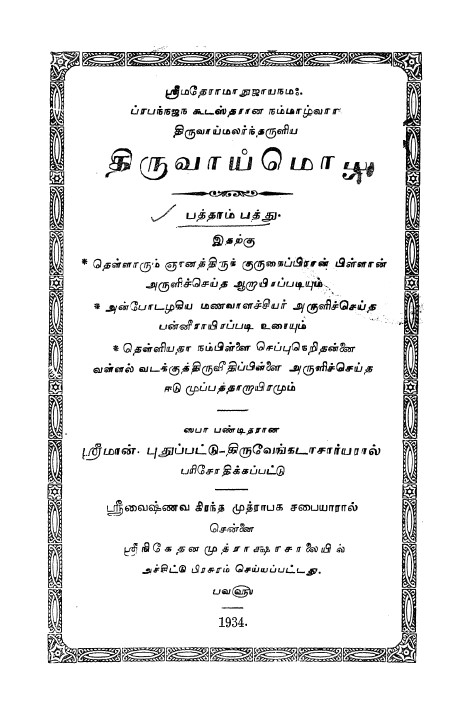 ஸ்ரீமதேராமாநுஜாயநம:.
ப்ரபந்நஜந கூடஸ்தரான நம்மாழ்வார்
திருவாய்மலர்ந்தருளிய
திருவாய்மொழி
பத்தாம் பத்து.
இதற்கு
* தெள்ளாரும் ஞானத்திருக் குருகைப்பிரான் பிள்ளான்
அருளிச்செய்த ஆறாயிரப்படியும்
* அன்போடழகிய மணவாளச்சீயர் அருளிச்செய்த
பன்னீராயிரப்படி உரையும்
* தெள்ளியதா நம்பிள்ளை செப்புநெறிதன்னை
வள்ளல் வடக்குத்திருவீதிப்பிள்ளை அருளிச்செய்த
ஈடு முப்பத்தாறாயிரமும்
ஸபா பண்டிதரான
ஸ்ரீமான். புதுப்பட்டு-திருவேங்கடாசார்யரால்
பரிசோதிக்கப்பட்டு
ஸ்ரீவைஷ்ணவ கிரந்த முத்ராபக சபையாரால்
சென்னை
ஸ்ரீநிகேதனமுத்ராக்ஷரசாலையில்
அச்சிட்டு பிரசுரம் செய்யப்பட்டது.
1934.